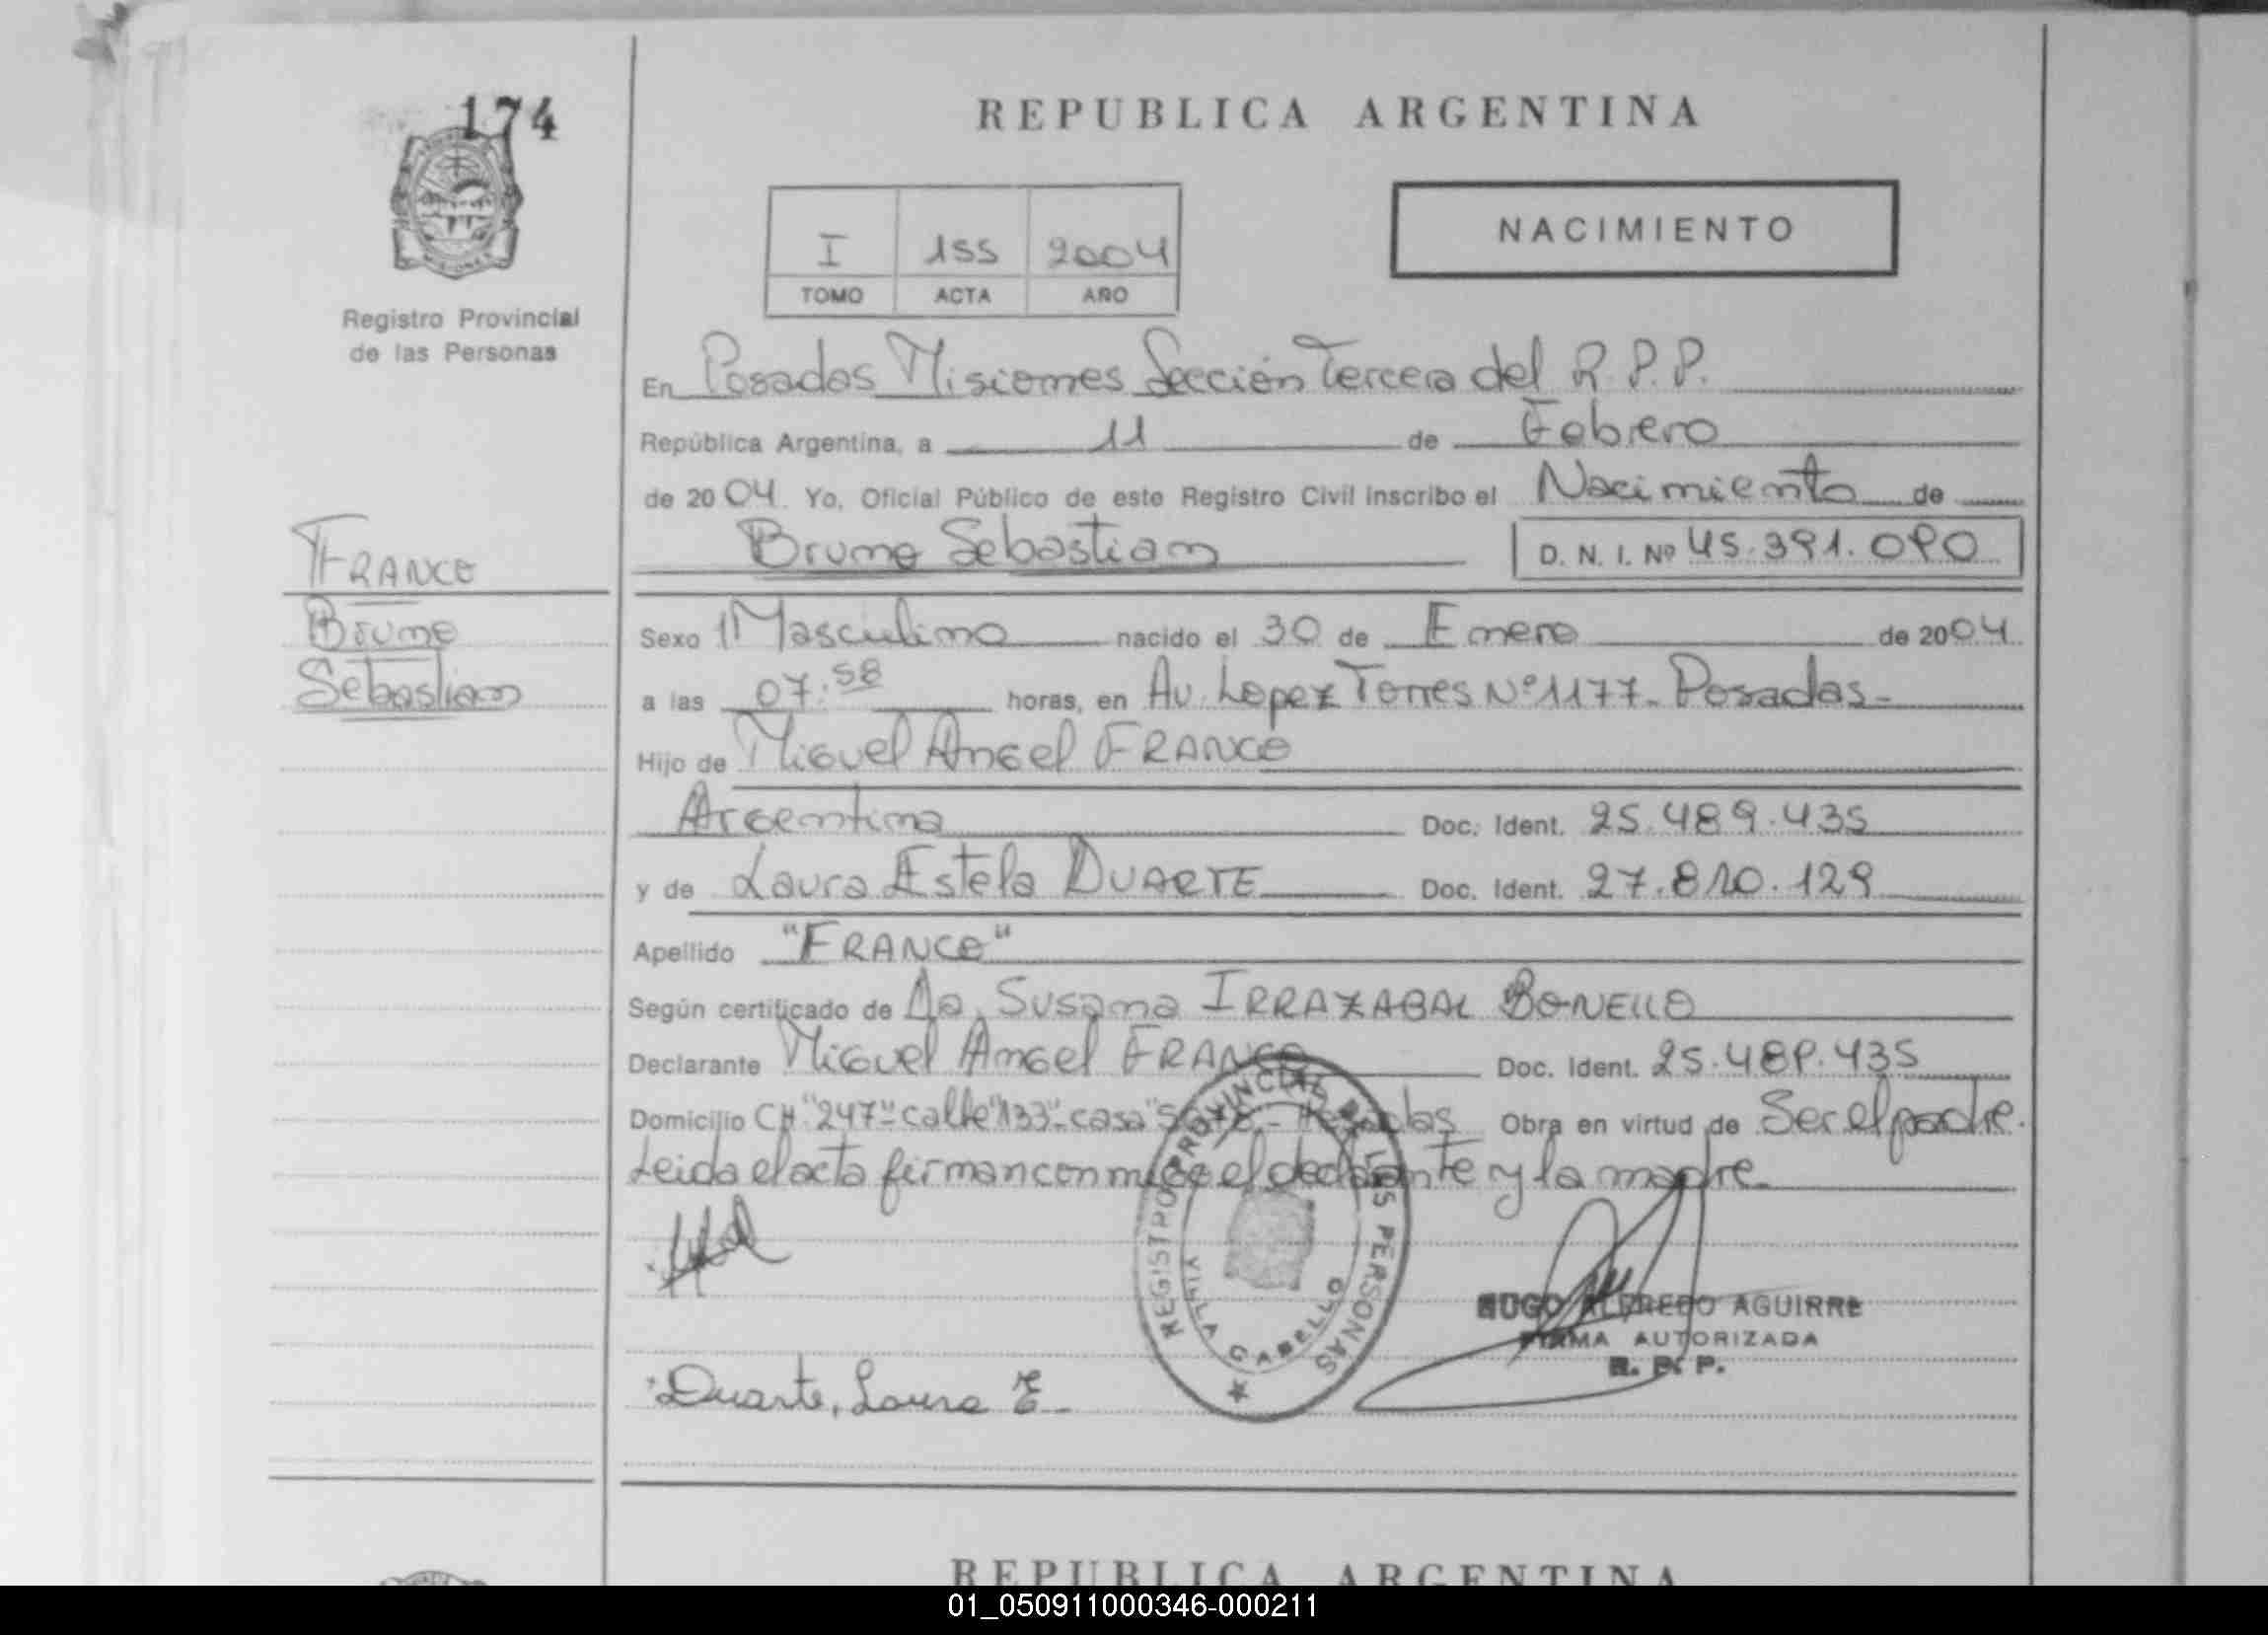 174
REPUBLICA ARGENTINA
NACIMIENTO
I 155 2004
TOMO ACTA AÑO
Registro Provincial
de las Personas
En Posadas Misiones Sección Tercera del R.P.P.
República Argentina, a 11 de Febrero
de 2004. Yo, Oficial Público de este Registro Civil inscribo el Nacimiento de
Bruno Sebastian D. N. I. Nº 45.391.090
FRANCO
Bruno
Sebastian
Sexo Masculino nacido el 30 de Enero de 2004
a las 07:58 horas, en Av. Lopez Torres Nº 1177- Posadas-
Hijo de Miguel Angel FRANCO
Argentina Doc. Ident. 25.489.435
y de Laura Estela DUARTE Doc. Ident. 27.810.129
Apellido "FRANCO"
Según certificado de Da. Susana IRRAZABAL BONELLO
Declarante Miguel Angel FRANCO Doc. Ident. 25.489.435
Domicilio CH "247" calle "133" casa Posadas Obra en virtud de Ser el padre.
Leida el acta firman conmigo el declarante y la madre.
REGISTRO PROVINCIAL DE LAS PERSONAS
VILLA CABELLO
HUGO ALFREDO AGUIRRE
FIRMA AUTORIZADA
R. P. P.
Duarte, Laura E.
REPUBLICA ARGENTINA
01_050911000346-000211